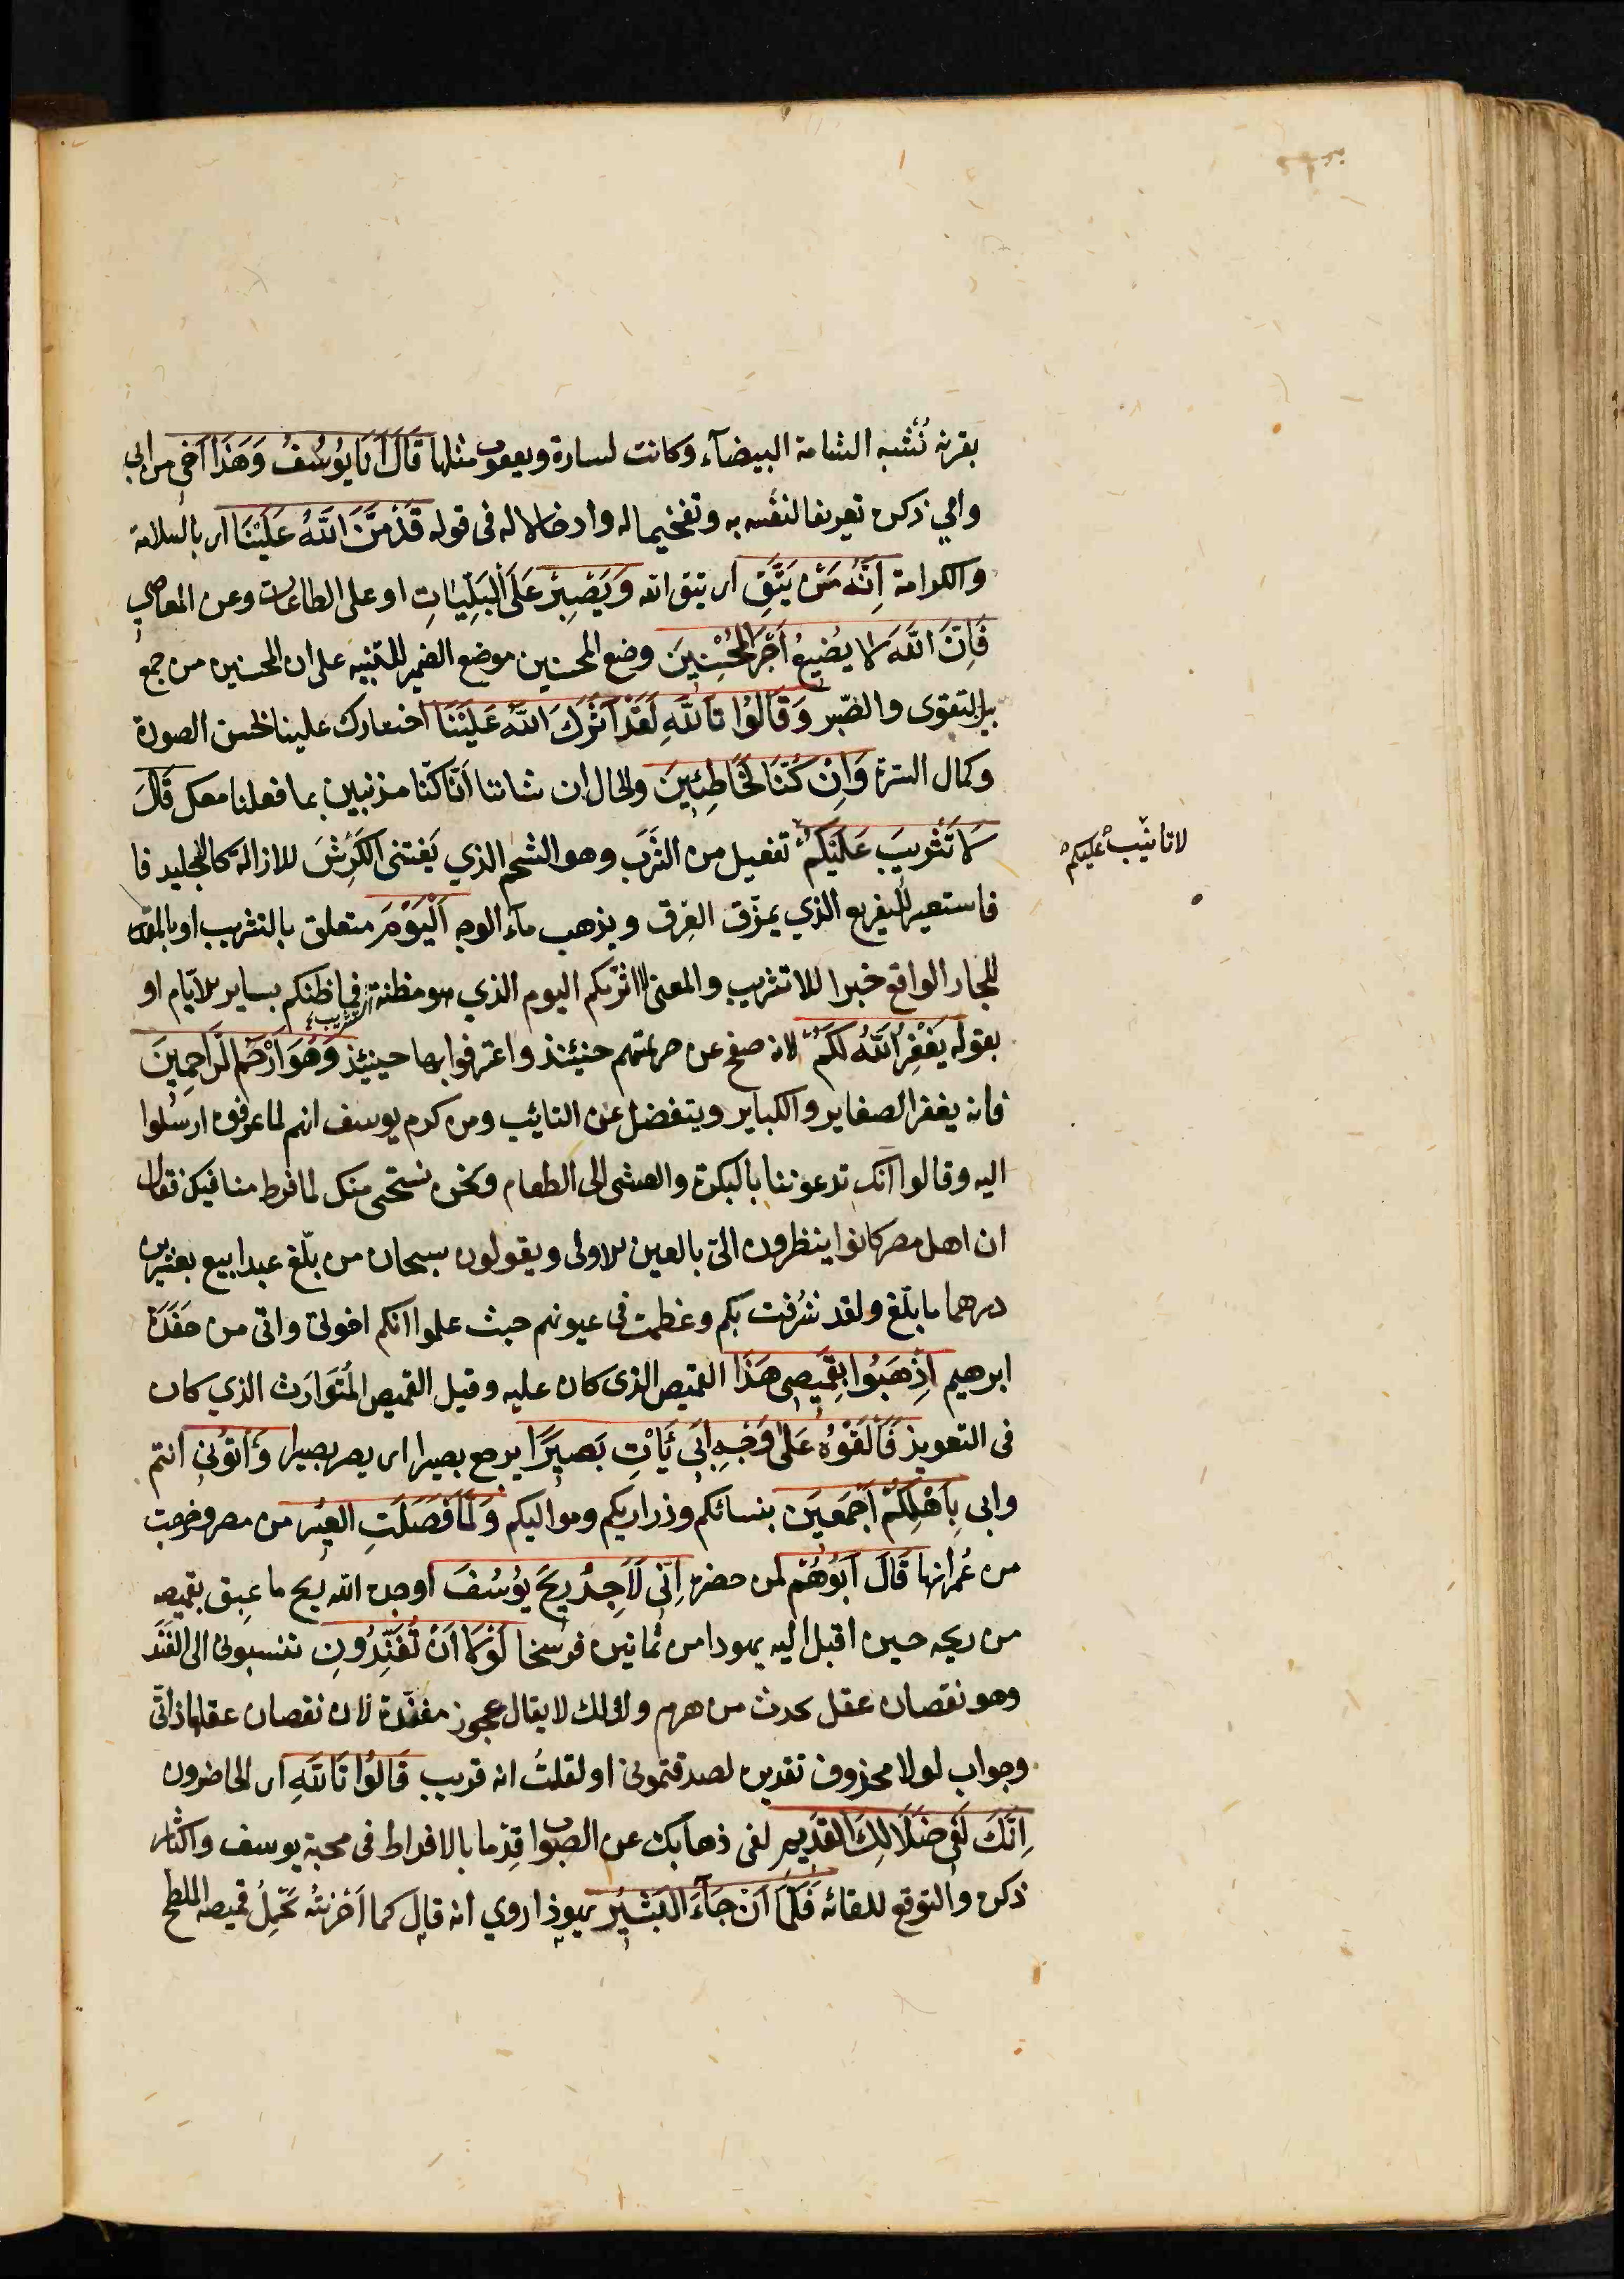 بقرنه تُشبه الشامة البيضآء وكانت لسارة ويعقوب مثلها قَالَ اَنَا يُوسُفُ وَهَذَا اَخِي من ابي
وامي ذكره تعريفا لنفسه به وتفخيما له وادخالا له فى قوله قَدْ مَنَّ اللَّهُ عَلَيْنَا اى بالسلامة
والكرامة اِنَّهُ مَنْ يَتَّقِ اى يتق الله وَيَصْبِرْ عَلَى الْبَلِيَّاتِ او على الطاعات وعن المعاصي
فَاِنَّ اللَّهَ لا يُضِيعُ اَجْرَ الْمُحْسِنِينَ وضع المحسنين موضع الضمير للتنبيه على ان المحسنين من جمع
بين التقوى والصّبر وَقَالُوا تَاللَّهِ لَقَدْ آثَرَكَ اللَّهُ عَلَيْنَا اختارك علينا لحسن الصورة
وكمال السيرة وَاِنْ كُنَّا لَخَاطِئِينَ والحال ان شاننا اَنّا كنّا مذنبين بما فعلنا معك قَالَ
لَا تَثْرِيبَ عَلَيْكُمُ تفعيل من الثَرَب وهو الشحم الذي يَغشى الكَرِشَ للازالة كالتجليد فا
فاستعير للتقريع الذي يمزّق العِرق ويذهب مآء الوجه اَلْيَوْمَ متعلق بالتثريب او بالمقدر
للجار الواقع خبرا للا تثريب والمعنى لا اثرّبكم اليوم الذي هو مظنة التثريب فما ظنكم بساير الايّام او
بقوله يَغْفِرُ اللَّهُ لَكُمْ لانه صفح عن جريمتهم حينئذ واعترفوا بها حينئذ وَهُوَ اَرْحَمُ الرَّاحِمِينَ
فانه يغفر الصغاير والكباير ويتفضل على التائب ومن كرم يوسف انهم لما عرفوه ارسلوا
اليه وقالوا انك تدعوننا بالبكرة والعشى الى الطعام ونحن نستحى منك لما فرط منا فيك فقال
ان اهل مصر كانوا ينظرون الىّ بالعين الاولى ويقولون سبحان من بلّغ عبدا بيع بعشرين
درهما ما بلّغ ولقد شَرُفت بكم وعظمت فى عيونهم حيث علموا انكم اخوتى وانى من حَفَدَة
ابرهيم اِذْهَبُوا بِقَمِيصِي هَذَا القميص الذى كان عليه وقيل القميص المُتَوَارَث الذي كان
فى التعويذ فَاَلْقُوهُ عَلَى وَجْهِ اَبِي يَاْتِ بَصِيرًا يرجع بصيرا اى يصر بصيرا وَأْتُونِي انتم
وابى بِاَهْلِكُمْ اَجْمَعِينَ بنسائكم وذراريكم ومواليكم وَلَمَّا فَصَلَتِ الْعِيرُ من مصر وخرجت
من عُمرانها قَالَ اَبُوهُمْ لمن حضره اِنِّى لَاَجِدُ رِيحَ يُوسُفَ اوجده الله ريح ما عبق بقميصه
من ريحه حين اقبل اليه يهودا من ثمانين فرسخا لَوْلَا اَنْ تُفَنِّدُونِ تنسبونى الى الفَنَد
وهو نقصان عقل يحدث من هرم ولذلك لا يقال عجوز مفنّدة لان نقصان عقلها ذاتّى
وجواب لولا محذوف تقديره لصدقتمونى او لقلتُ انه قريب قَالُوا تَاللَّهِ اى الحاضرون
اِنَّكَ لَفِي ضَلَالِكَ الْقَدِيمِ لفى ذهابك عن الصواب قِدْما بالافراط فى محبة يوسف واكثار
ذكره والتوقع للقائه فَلَمَّا اَنْ جَآءَ الْبَشِيرُ يهوذا روي انه قال كما اَحْزنتُه بحَمْلِ قميصه الملطخ
لا تانيب عليكم